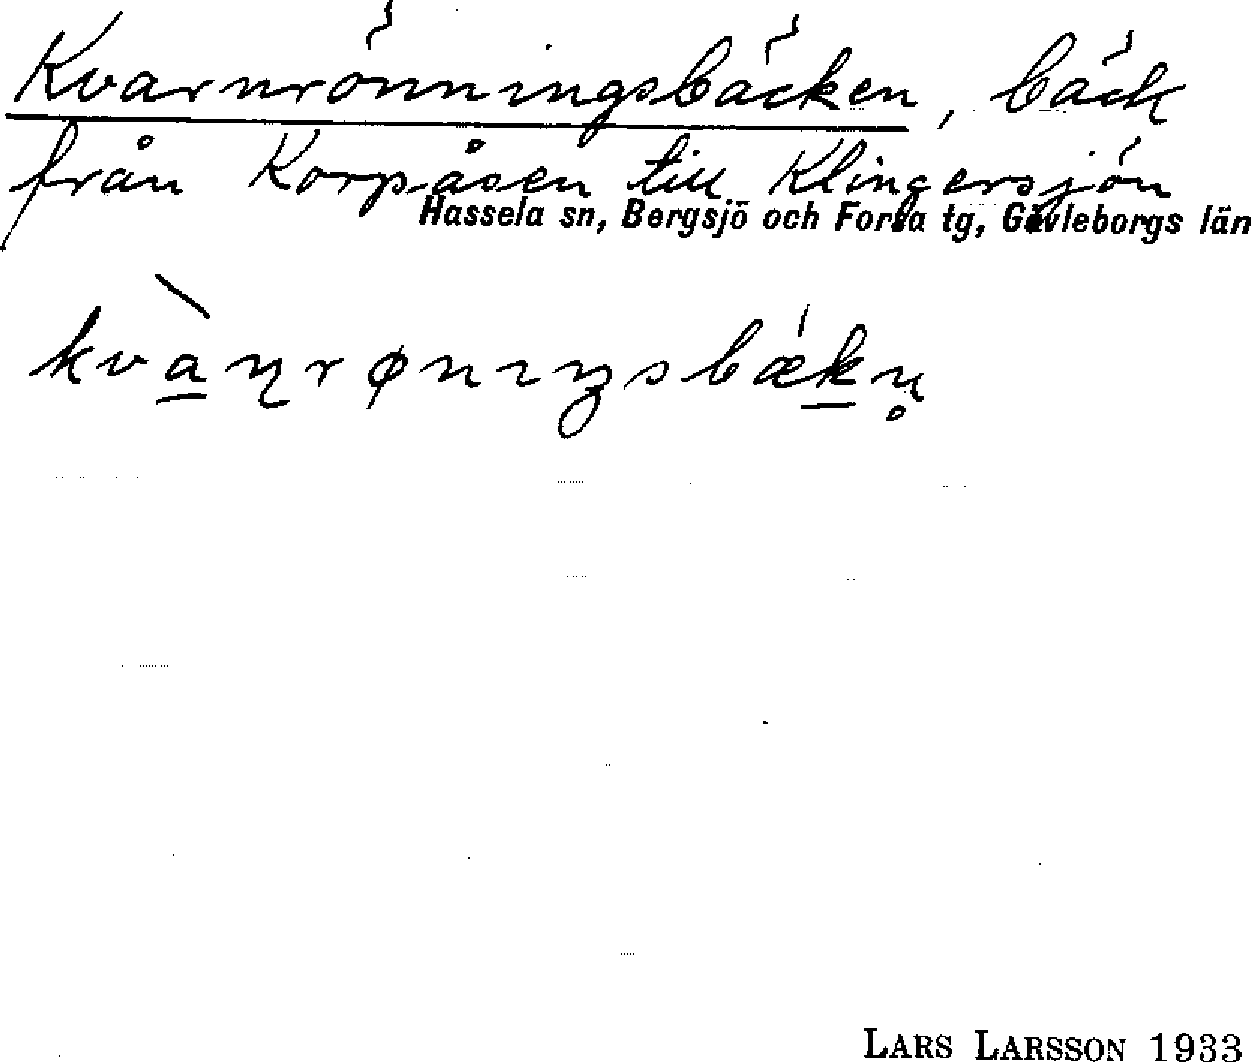 Kvarnrönningsbäcken, bäck
från Korpåsen till Klingersjön
Hassela sn, Bergsjö och Forsa tg, Gävleborgs län
kvàɳrønıŋsbækn̥
LARS LARSSON 1933